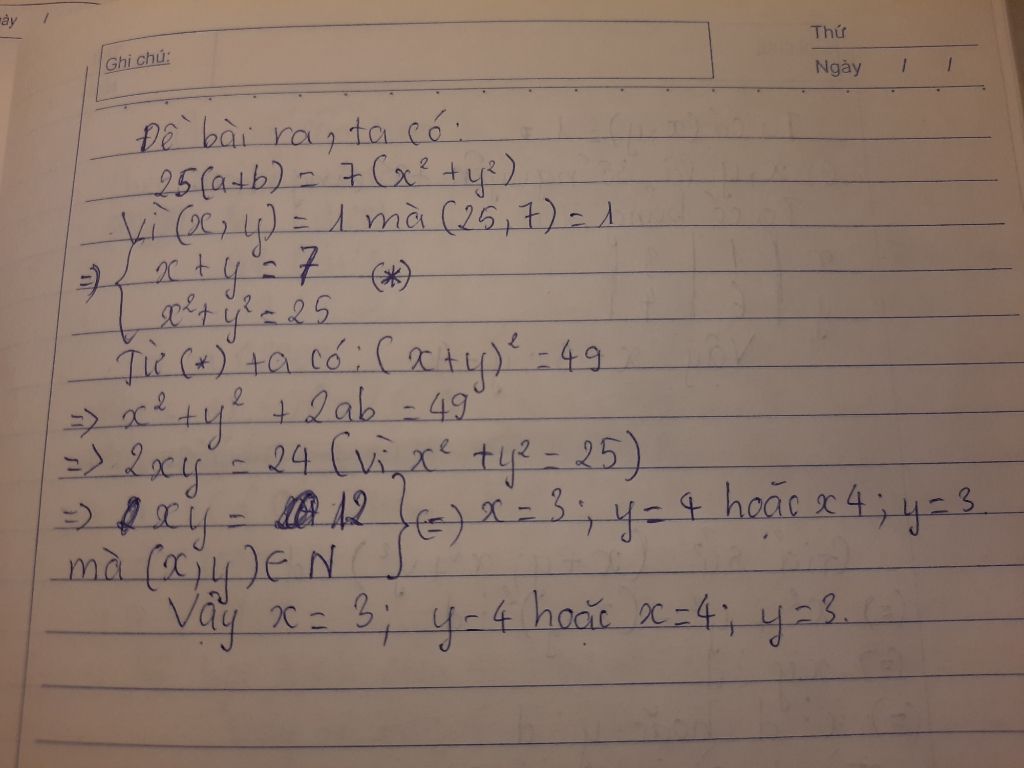 ày /
Thứ
Ghi chú:
Ngày / /
Đề bài ra, ta có:
25(a+b) = 7(x² + y²)
Vì (x, y) = 1 mà (25, 7) = 1
=> { x + y = 7 (*)
x² + y² = 25
Từ (*) ta có: (x+y)² = 49
=> x² + y² + 2ab = 49
=> 2xy = 24 (vì x² + y² = 25)
=> xy = 12 } (=) x = 3; y = 4 hoặc x 4; y = 3.
mà (x, y) ∈ N
Vậy x = 3; y = 4 hoặc x = 4; y = 3.